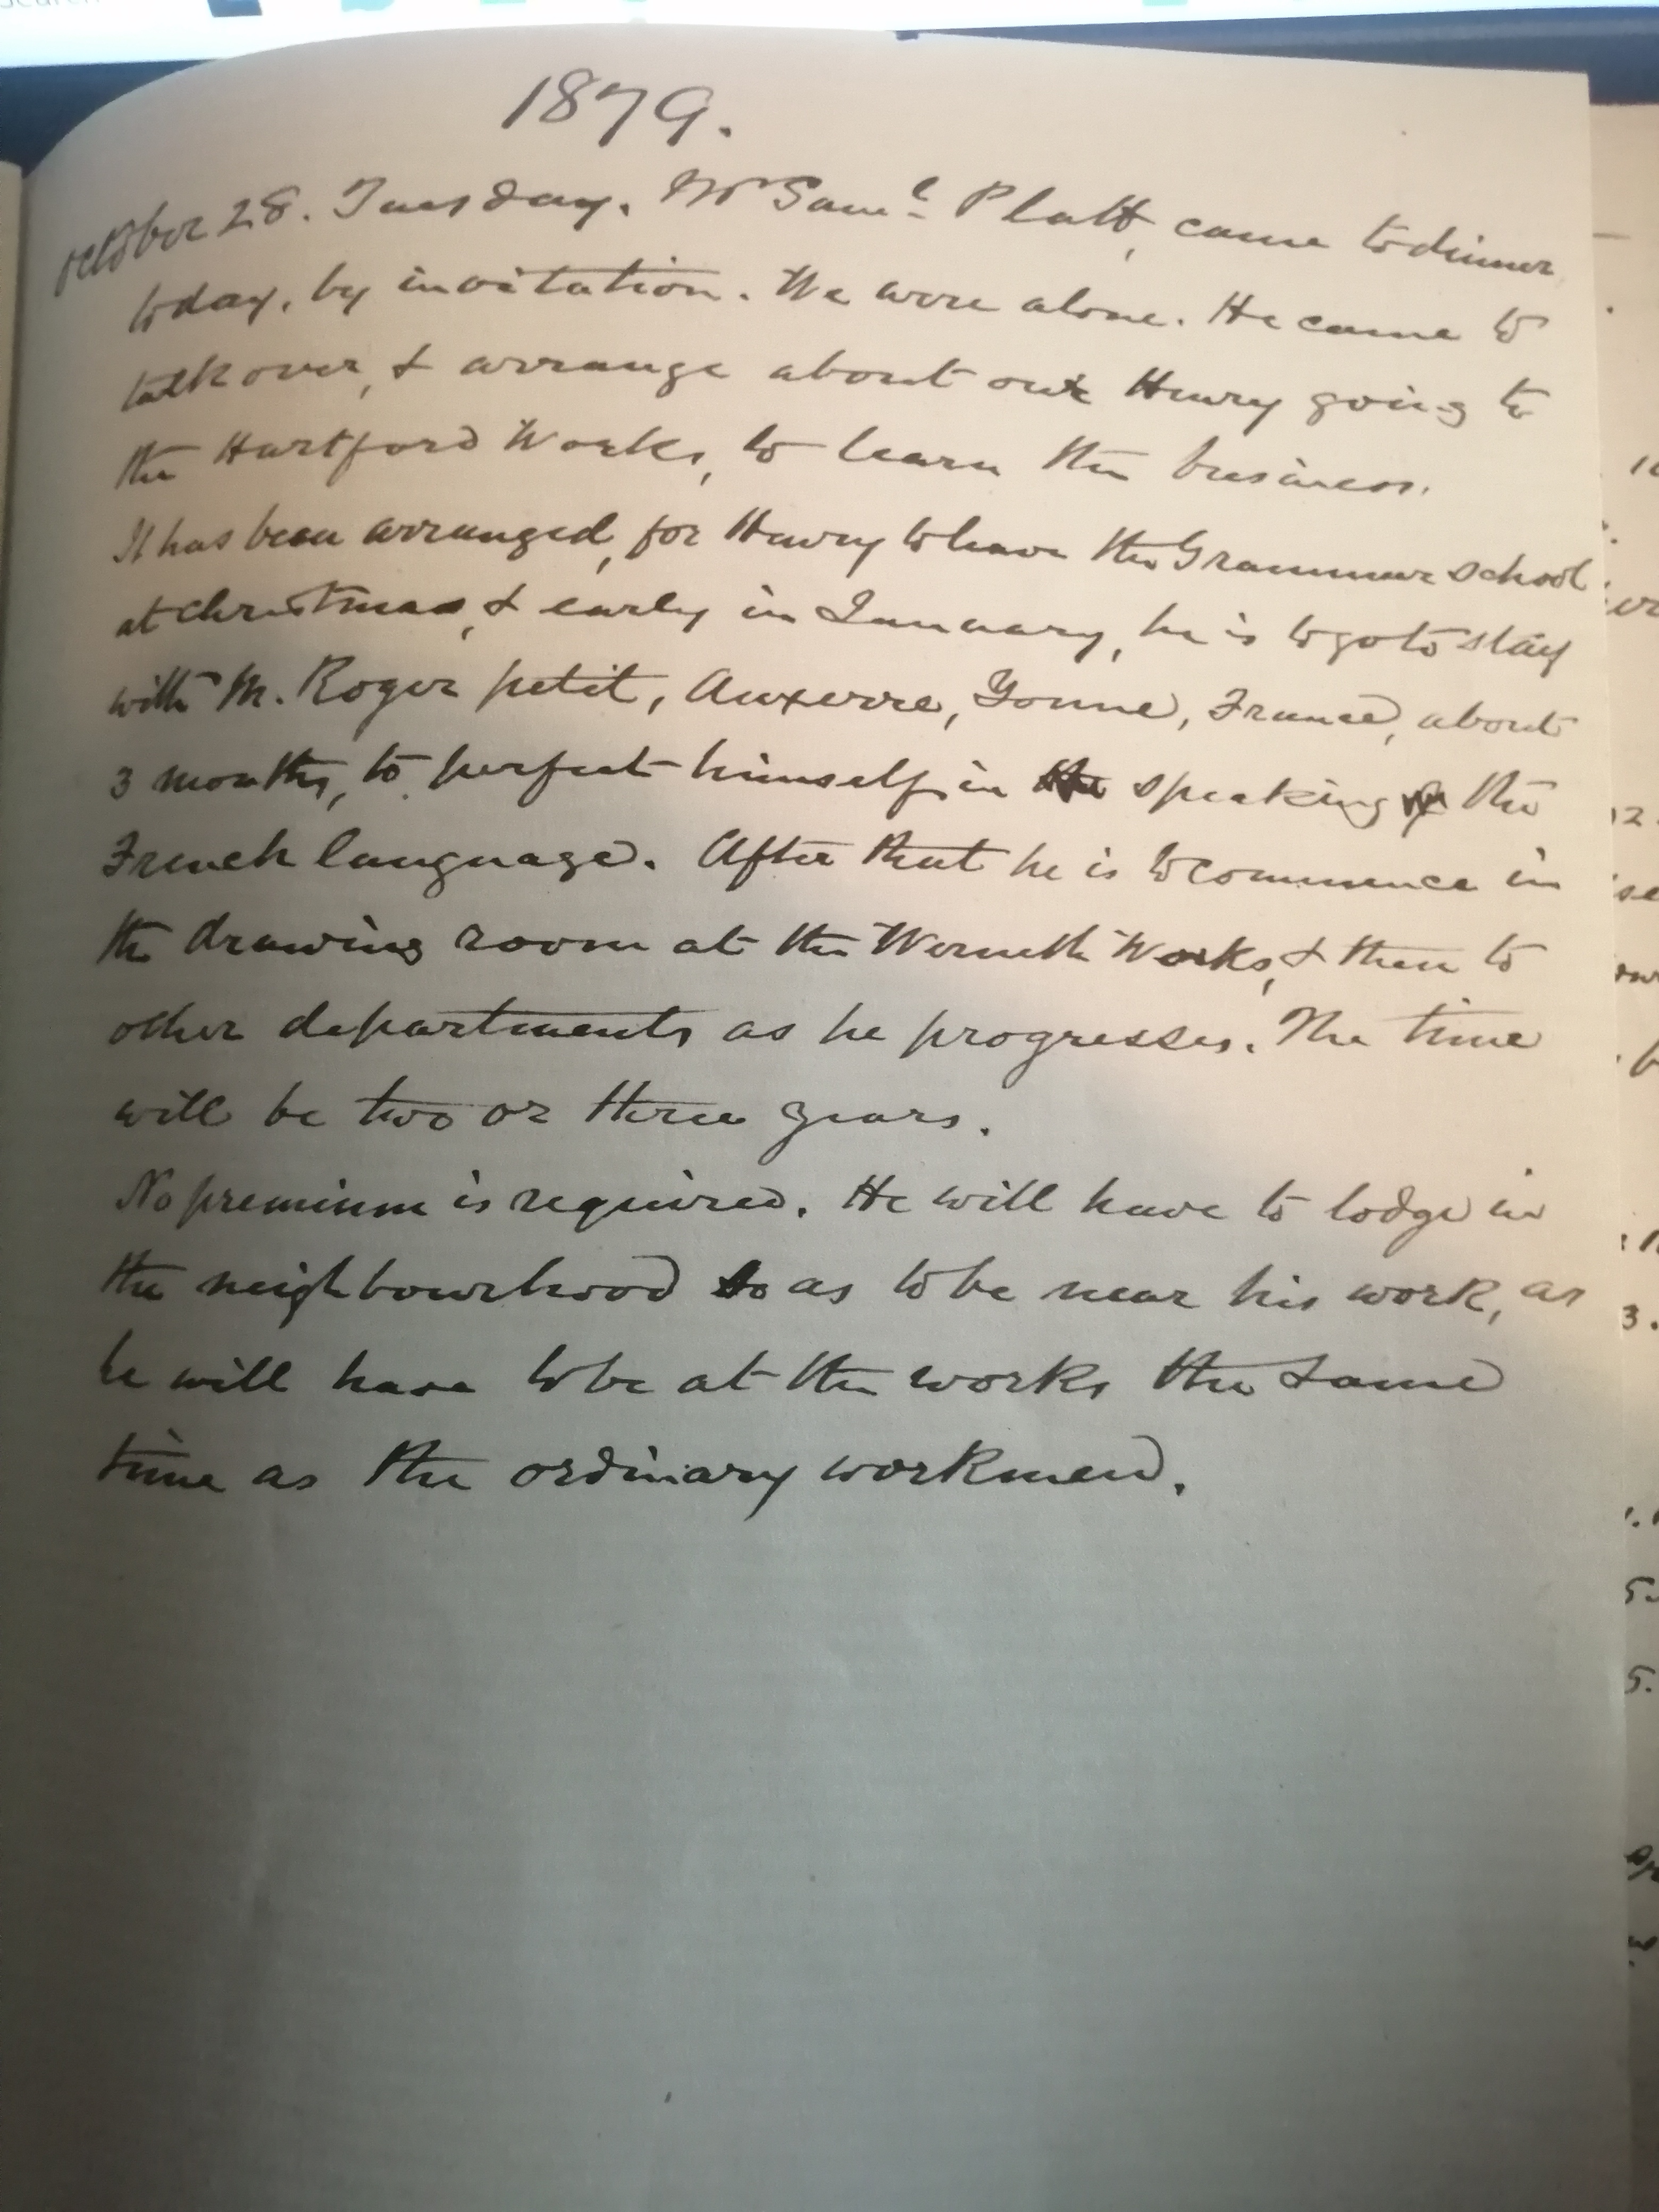 1879.
October 28. Tuesday. Mr Saml Platt, came to dinner
today, by invitation. We were alone. He came to
talk over, & arrange about our Henry going to
the Hartford Works, to learn the business.
It has been arranged, for Henry to leave the Grammar School
at Christmas, & early in January, he is to go to stay
with M. Roger petit, Auxerre, Yonne, France, about
3 months, to perfect himself in speaking the
French language. After that he is to commence in
the drawing room at the Werneth Works, & then to
other departments as he progresses. The time
will be two or three years.
No premium is required. He will have to lodge in
the neighbourhood so as to be near his work, as
he will have to be at the works the same
time as the ordinary workmen.